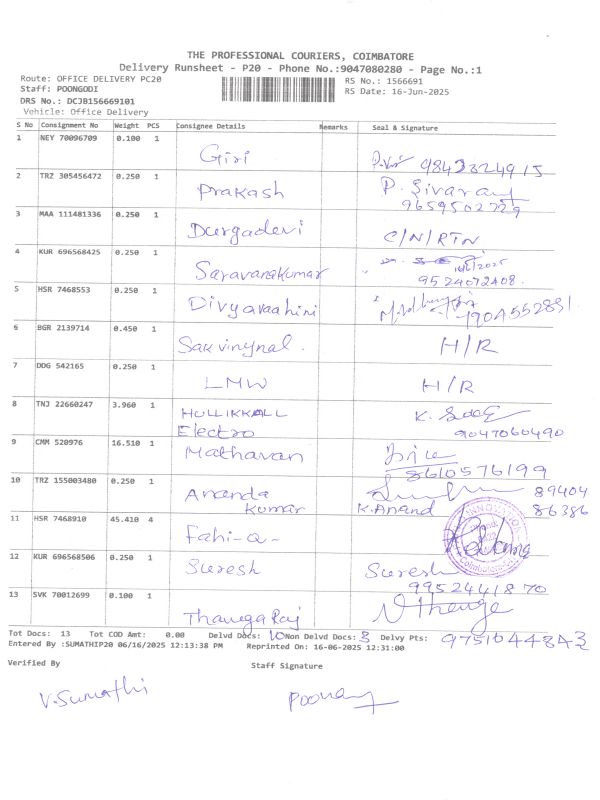 THE PROFESSIONAL COURIERS, COIMBATORE
Delivery Runsheet - P20 - Phone No.:9047080280 - Page No.:1
Route: OFFICE DELIVERY PC20
RS No.: 1566691
Staff: POONGODI
RS Date: 16-Jun-2025
DRS No.: DCJB156669101
Vehicle: Office Delivery
S No Consignment No Weight PCS Consignee Details Remarks Seal & Signature
1 NEY 70096709 0.100 1
Giri 9842324915
2 TRZ 305456472 0.250 1
Prakash P. Sivaram
9659502729
3 MAA 111481336 0.250 1
Durgadevi C/N/RTN
4 KUR 696568425 0.250 1
Saravanakumar 16/6/2025
9524072408.
5 HSR 7468553 0.250 1
Divyavaahini 7904552831.
6 BGR 2139714 0.450 1
H/R
7 DDG 542165 0.250 1
LMW H/R
8 TNJ 22660247 3.960 1
HULLIKKALL K.
Electro 9047060490
9 CMM 520976 16.510 1
Mathavan
8610576199
10 TRZ 155003480 0.250 1
89404
Ananda
Kumar K.Anand 86386
11 HSR 7468910 45.410 4
Fahi-a-
12 KUR 696568506 0.250 1
Suresh Suresh
9952441870
13 SVK 70012699 0.100 1
ThangaRaj N Thange
Tot Docs: 13 Tot COD Amt: 0.00 Delvd Docs: 10 Non Delvd Docs: 3 Delvy Pts: 9751044843
Entered By :SUMATHIP20 06/16/2025 12:13:38 PM Reprinted On: 16-06-2025 12:31:00
Verified By Staff Signature
V.Sumathi